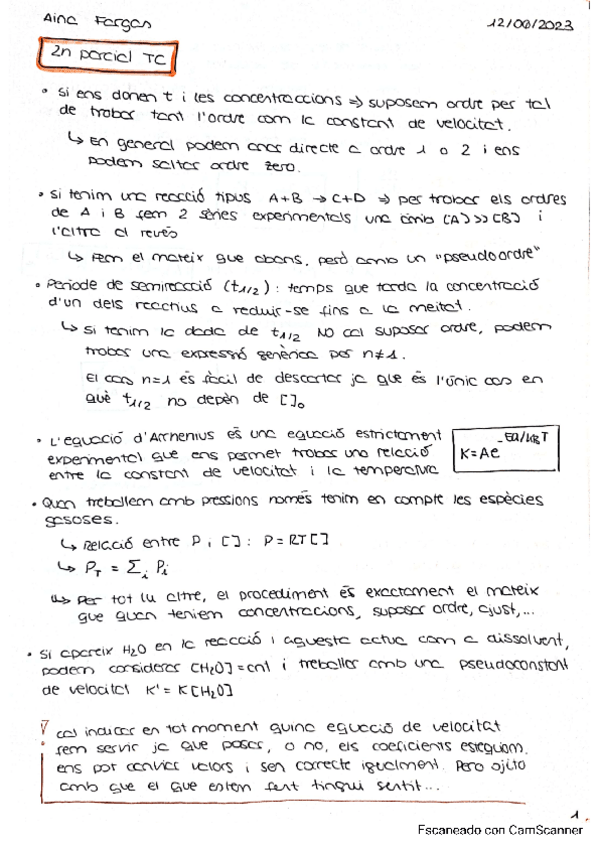 Aina Fargas
12/06/2023
2n parcial TC
• Si ens donen t i les concentraccions ⇒ suposem ordre per tal
de trobar tant l'ordre com la constant de velocitat.
↳ En general podem anar directe a ordre 1 o 2 i ens
podem saltar ordre zero.
• Si tenim una reacció tipus A+B → C+D ⇒ per trobar els ordres
de A i B fem 2 sèries experimentals una amb [A]>>[B] i
l'altra al revés
↳ Fem el mateix que abans, però amb un "pseudoordre"
• Període de semireacció (t1/2): temps que tarda la concentració
d'un dels reactius a reduir-se fins a la meitat.
↳ Si tenim la dada de t1/2 NO cal suposar ordre, podem
trobar una expressió genèrica per n≠1.
El cas n=1 és fàcil de descartar ja que és l'únic cas en
què t1/2 no depèn de []o
• L'equació d'Arrhenius és una equació estrictament
experimental que ens permet trobar una relació
entre la constant de velocitat i la temperatura
K=Ae^-Ea/kBT
• Quan treballem amb pressions només tenim en compte les espècies
gasoses.
↳ Relació entre P i []: P=RT[]
↳ PT = Σi Pi
↳ Per tot lu altre, el procediment és exactament el mateix
que quan teniem concentracions, suposar ordre, ajust,...
• Si apareix H2O en la reacció i aquesta actua com a dissolvent,
podem considerar [H2O]=cnt i treballar amb una pseudoconstant
de velocitat K'=K[H2O]
! cal indicar en tot moment quina equació de velocitat
fem servir ja que posar, o no, els coeficients estequiom.
ens pot canviar valors i ser correcte igualment. Pero ojito
amb que el que estem fent tingui sentit...
1
Escaneado con CamScanner